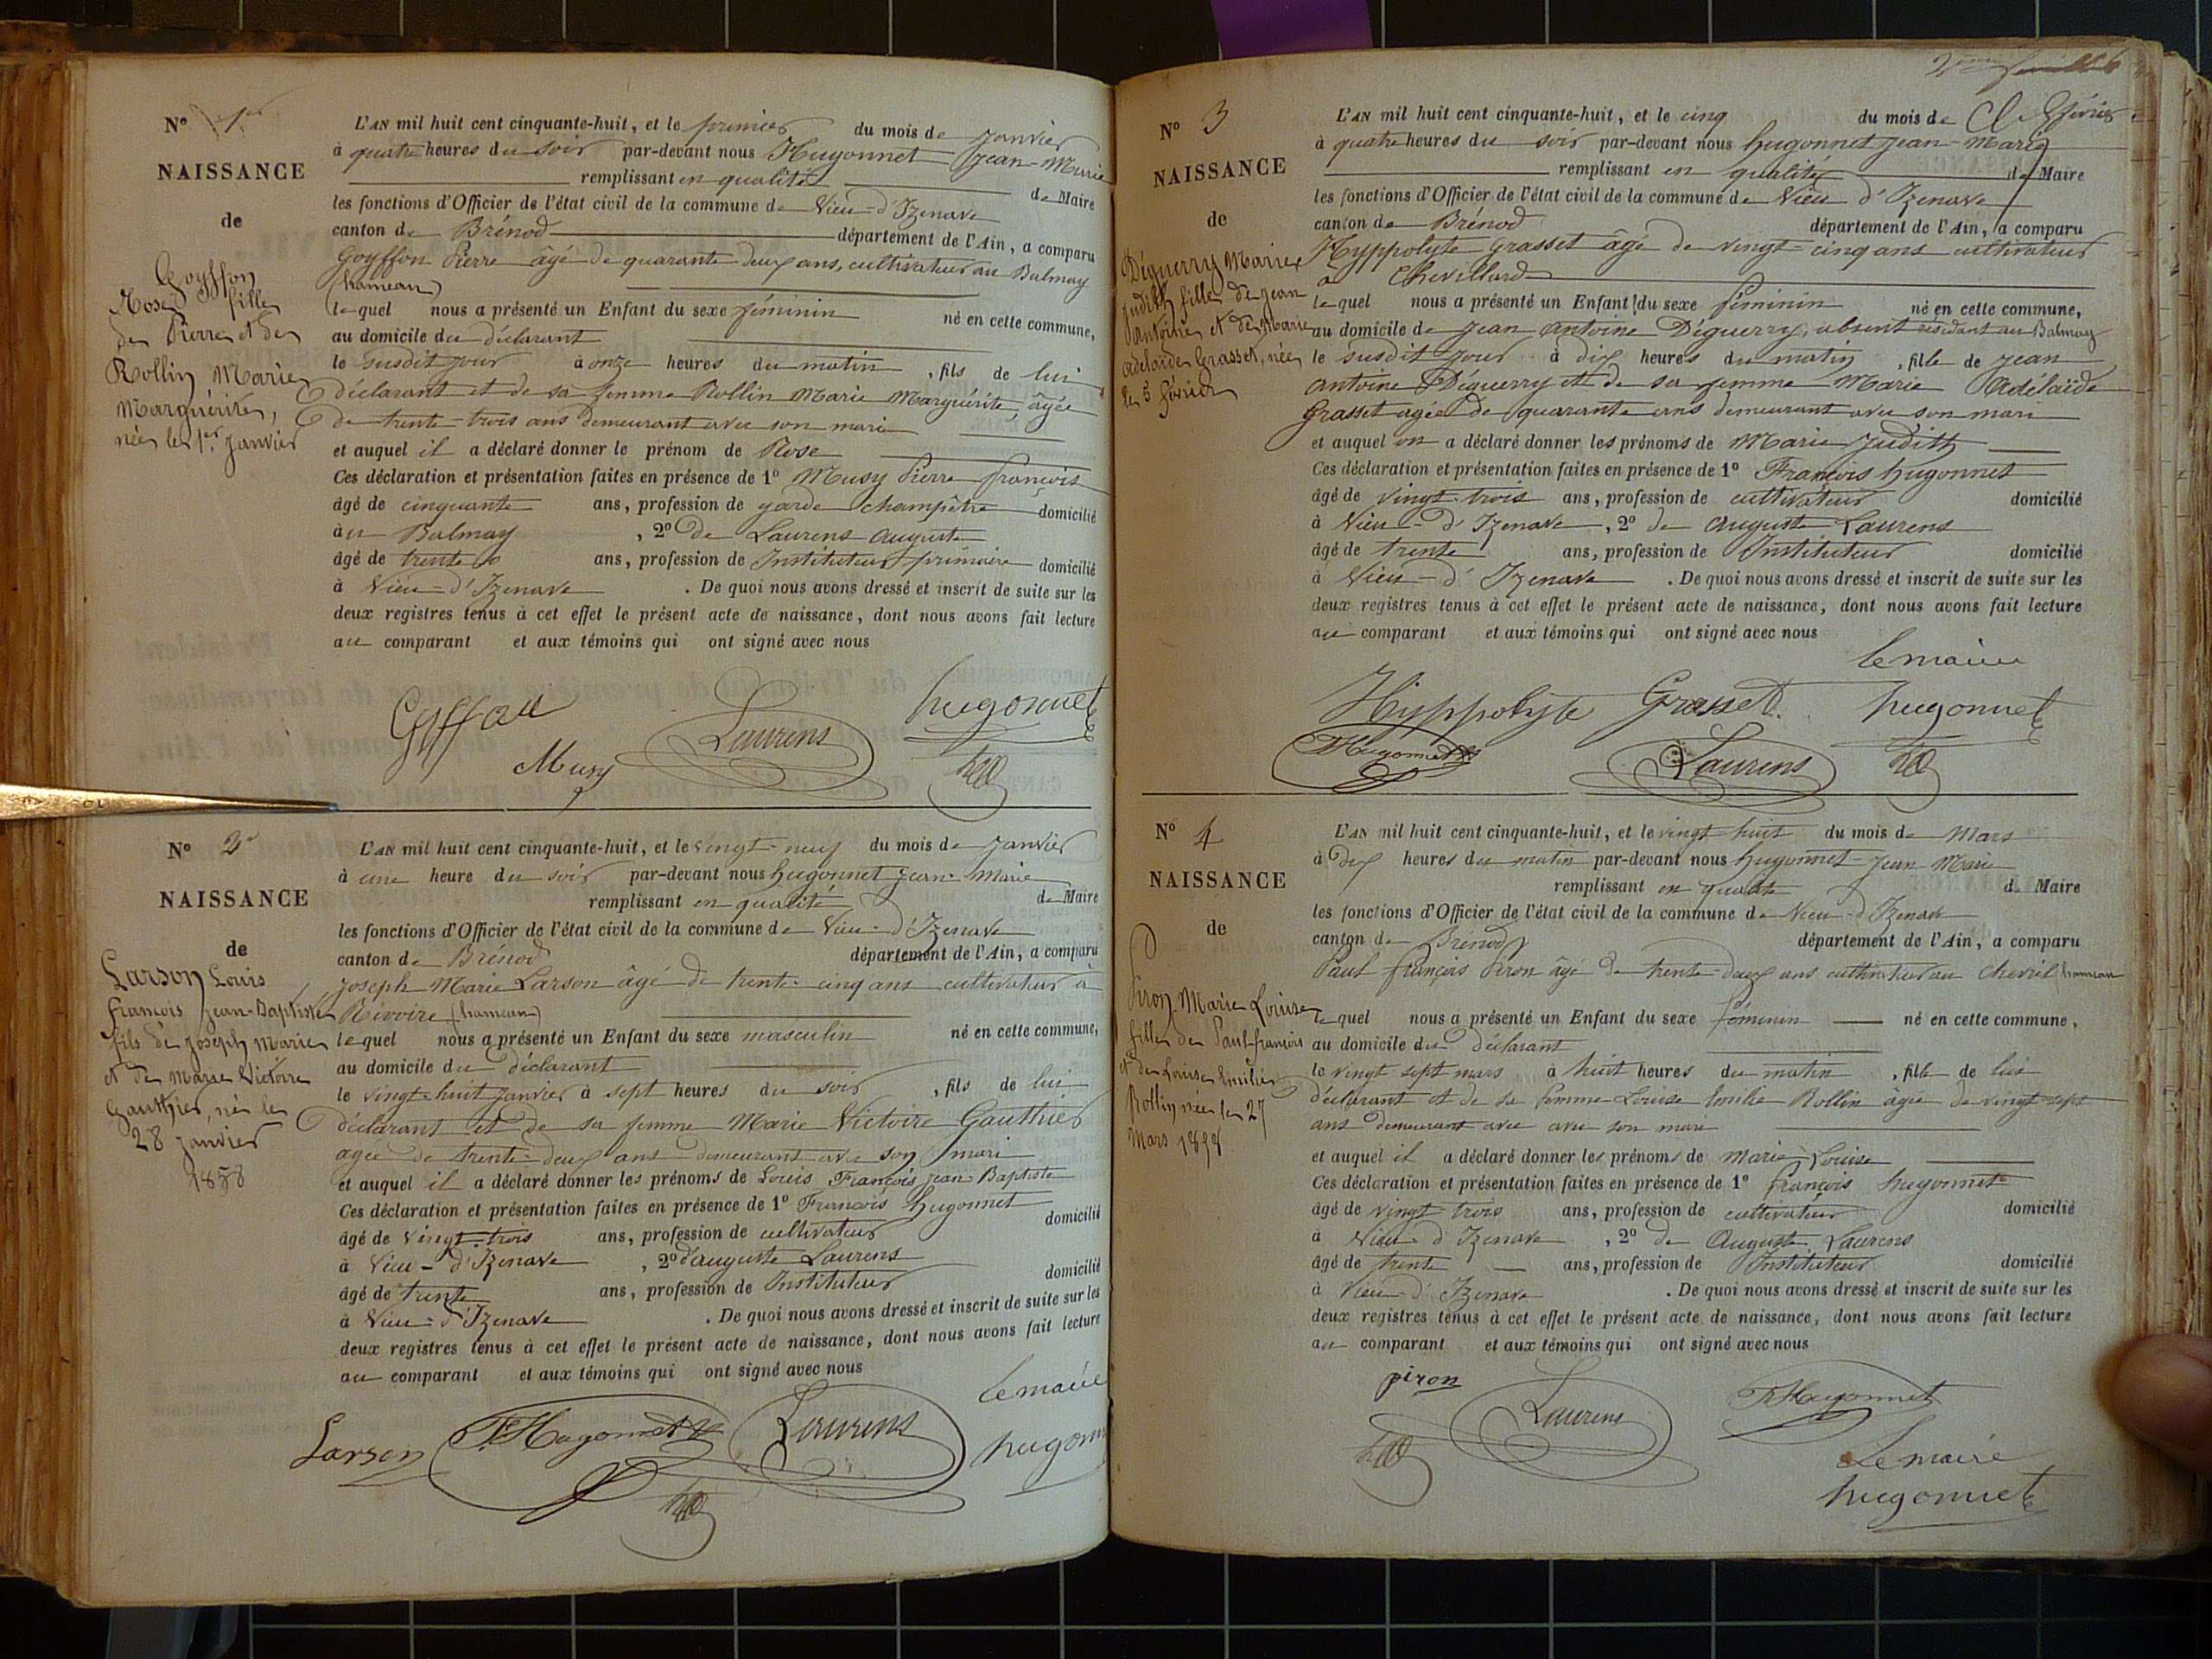 N° 1er
NAISSANCE
de
Goyffon
Rose fille
de Pierre et de
Rollin Marie
Marguérite,
née le 1er Janvier
L'AN mil huit cent cinquante-huit, et le premier du mois de Janvier
à quatre heures du soir par-devant nous Hugonnet Jean-Marie
remplissant en qualité de Maire
les fonctions d'Officier de l'état civil de la commune de Vieu-d'Izenave
canton de Brénod département de l'Ain, a comparu
Goyffon Pierre âgé de quarante deux ans, cultivateur au Balmay
(hameau)
lequel nous a présenté un Enfant du sexe féminin né en cette commune,
au domicile du déclarant
le susdit jour à onze heures du matin, fils de lui
déclarant et de sa femme Rollin Marie Marguérite, âgée
de trente-trois ans demeurant avec son mari
et auquel il a déclaré donner le prénom de Rose
Ces déclaration et présentation faites en présence de 1° Musy Pierre François
âgé de cinquante ans, profession de garde champêtre domicilié
au Balmay, 2° de Laurens Auguste
âgé de trente ans, profession de Instituteur primaire domicilié
à Vieu-d'Izenave. De quoi nous avons dressé et inscrit de suite sur les
deux registres tenus à cet effet le présent acte de naissance, dont nous avons fait lecture
au comparant et aux témoins qui ont signé avec nous
Goyffon
Musy
Laurens
hugonnet
N° 2
NAISSANCE
de
Larson Louis
François Jean-Baptiste
fils de Joseph Marie
et de Marie Victoire
Gauthier, né le
28 janvier
1858
L'AN mil huit cent cinquante-huit, et le vingt-neuf du mois de Janvier
à une heure du soir par-devant nous hugonnet Jean-Marie
remplissant en qualité de Maire
les fonctions d'Officier de l'état civil de la commune de Vieu-d'Izenave
canton de Brénod département de l'Ain, a comparu
Joseph Marie Larson âgé de trente-cinq ans cultivateur à
Révoire (hameau)
lequel nous a présenté un Enfant du sexe masculin né en cette commune,
au domicile du déclarant
le vingt-huit janvier à sept heures du soir, fils de lui
déclarant et de sa femme Marie Victoire Gauthier
agée de trente-deux ans demeurant avec son mari
et auquel il a déclaré donner les prénoms de Louis François jean Baptiste
Ces déclaration et présentation faites en présence de 1° François hugonnet
âgé de vingt-trois ans, profession de cultivateur domicilié
à Vieu-d'Izenave, 2° d'auguste Laurens
âgé de trente ans, profession de Instituteur domicilié
à Vieu-d'Izenave. De quoi nous avons dressé et inscrit de suite sur les
deux registres tenus à cet effet le présent acte de naissance, dont nous avons fait lecture
au comparant et aux témoins qui ont signé avec nous
Larson
F. Hugonnet
Laurens
le maire
hugonn
2ème feuillet
N° 3
NAISSANCE
de
Déguerry Marie
Judith fille de Jean
Antoine et de Marie
adélaïde Grasset, née
le 5 février
L'AN mil huit cent cinquante-huit, et le cinq du mois de février
à quatre heures du soir par-devant nous hugonnet Jean-Marie
remplissant en qualité de Maire
les fonctions d'Officier de l'état civil de la commune de Vieu d'Izenave
canton de Brénod département de l'Ain, a comparu
Hyppolyte Grasset âgé de vingt-cinq ans cultivateur
à Chevillard
lequel nous a présenté un Enfant du sexe féminin né en cette commune,
au domicile de Jean Antoine Déguerry, absent résidant au Balmay
le susdit jour à dix heures du matin, fille de Jean
Antoine Déguerry et de sa femme Marie Adélaïde
Grasset agée de quarante ans demeurant avec son mari
et auquel on a déclaré donner les prénoms de Marie Judith
Ces déclaration et présentation faites en présence de 1° François hugonnet
âgé de vingt-trois ans, profession de cultivateur domicilié
à Vieu-d'Izenave, 2° de auguste Laurens
âgé de trente ans, profession de Instituteur domicilié
à Vieu-d'Izenave. De quoi nous avons dressé et inscrit de suite sur les
deux registres tenus à cet effet le présent acte de naissance, dont nous avons fait lecture
au comparant et aux témoins qui ont signé avec nous
le maire
Hyppolyte Grasset
hugonnet
F Hugonnet
Laurens
N° 4
NAISSANCE
de
Piron Marie Louise
fille de Paul-françois
et de Louise Emilie
Rollin née le 27
Mars 1858
L'AN mil huit cent cinquante-huit, et le vingt-huit du mois de Mars
à dix heures du matin par-devant nous hugonnet Jean Marie
remplissant en qualité de Maire
les fonctions d'Officier de l'état civil de la commune de Vieu-d'Izenave
canton de Brénod département de l'Ain, a comparu
Paul françois Piron âgé de trente-deux ans cultivateur au Chevril (hameau
lequel nous a présenté un Enfant du sexe féminin né en cette commune,
au domicile du déclarant
le vingt sept mars à huit heures du matin, fille de lui
déclarant et de sa femme Louise Emilie Rollin agée de vingt-sept
ans demeurant avec avec son mari
et auquel il a déclaré donner les prénoms de Marie Louise
Ces déclaration et présentation faites en présence de 1° françois hugonnet
âgé de vingt trois ans, profession de cultivateur domicilié
à Vieu d'Izenave, 2° de Auguste Laurens
âgé de trente ans, profession de Instituteur domicilié
à Vieu-d'Izenave. De quoi nous avons dressé et inscrit de suite sur les
deux registres tenus à cet effet le présent acte de naissance, dont nous avons fait lecture
au comparant et aux témoins qui ont signé avec nous
piron
Laurens
F Hugonnet
Le maire
hugonnet